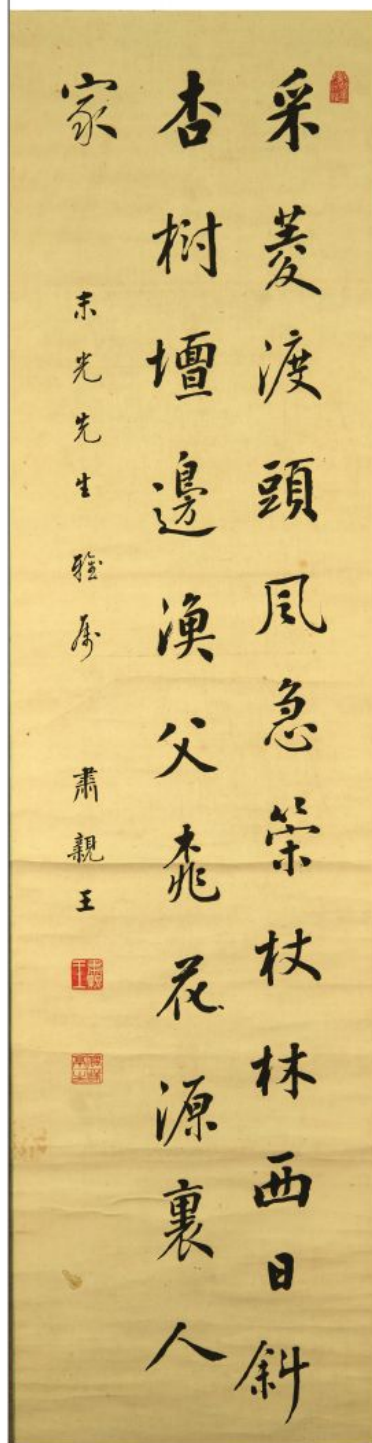 采菱渡頭風急策杖林西日斜
杏樹壇邊漁父桃花源裏人
家
末光先生雅属 肅親王